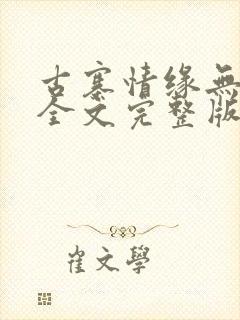 古寨情缘無
全文完整版
崔文學